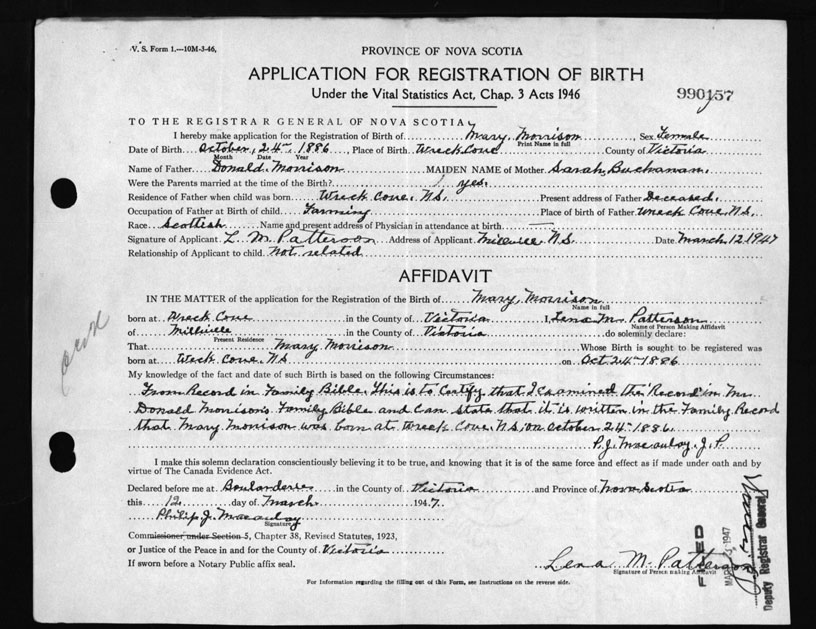 V. S. Form 1.—10M-3-46,
PROVINCE OF NOVA SCOTIA
APPLICATION FOR REGISTRATION OF BIRTH
Under the Vital Statistics Act, Chap. 3 Acts 1946
990157
TO THE REGISTRAR GENERAL OF NOVA SCOTIA
I hereby make application for the Registration of Birth of Mary Morrison, Sex Female
Print Name in full
Date of Birth October 24 1886 Place of Birth Wreck Cove County of Victoria
Month Date Year
Name of Father Donald Morrison MAIDEN NAME of Mother Sarah Buchanan
Were the Parents married at the time of the Birth? yes.
Residence of Father when child was born Wreck Cove, N.S. Present address of Father Deceased.
Occupation of Father at Birth of child Farming Place of birth of Father Wreck Cove N.S.
Race Scottish Name and present address of Physician in attendance at birth —
Signature of Applicant L. M. Patterson Address of Applicant Millville N.S. Date March 12 1947
Relationship of Applicant to child not related
AFFIDAVIT
IN THE MATTER of the application for the Registration of the Birth of Mary Morrison
Name in full
born at Wreck Cove in the County of Victoria I, Lena M. Patterson
Name of Person Making Affidavit
of Millville in the County of Victoria do solemnly declare:
Present Residence
That Mary Morrison Whose Birth is sought to be registered was
born at Weck Cove, NS on Oct 24 1886
My knowledge of the fact and date of such Birth is based on the following Circumstances:
From Record in Family Bible. This is to Certify that I examined the Record in Mr.
Donald Morrison's Family Bible and can state that it is written in the Family Record
that Mary Morrison was born at Wreck Cove, NS, on October 24 1886.
P. J. Macaulay, J. P
I make this solemn declaration conscientiously believing it to be true, and knowing that it is of the same force and effect as if made under oath and by
virtue of The Canada Evidence Act.
Declared before me at Boularderie in the County of Victoria and Province of Nova Scotia
this 12 day of March 1947.
Philip J. Macaulay
Signature
Commissioner under Section 5, Chapter 38, Revised Statutes, 1923,
or Justice of the Peace in and for the County of Victoria
If sworn before a Notary Public affix seal.
Lena M. Patterson
Signature of Person making Affidavit
For Information regarding the filling out of this Form, see Instructions on the reverse side.
FILED
1947
Deputy Registrar General